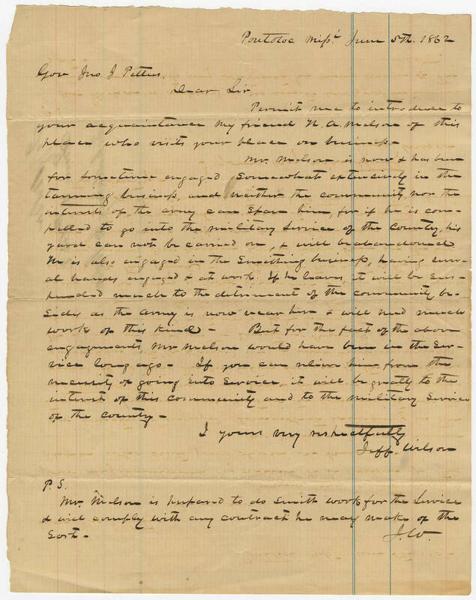 Pontotoc Missi June 5th, 1862
Gov Jno J Pettus
Dear Sir
Permit me to introduce to
your acquaintance my friend N. A. Melson of this
place who visits your place on business.
Mr Melson is now & has been
for sometime engaged somewhat extensively in the
tanning business, and neither the community nor the
interests of the army can spare him, for if he is com-
pelled to go into the military service of the County, his
yard can not be carried on, & will be abandoned
He is also engaged in the Smithing business, having seve-
ral hands engaged & at work. If he leaves, it will be sus-
pended much to the detriment of the community be-
sides as the army is now near here & will need much
work of this kind - But for the fact of the above
engagements Mr Melson would have been in the Ser-
vice long ago - If you can relieve him from the
necessity of going into service, it will be greatly to the
interest of this community and to the military service
of the County -
I yours very respectfully
Jeff. Wilson
P. S.
Mr. Melson is prepared to do smith work for the service
& will comply with any contract he may make of the
sort -
J. W.